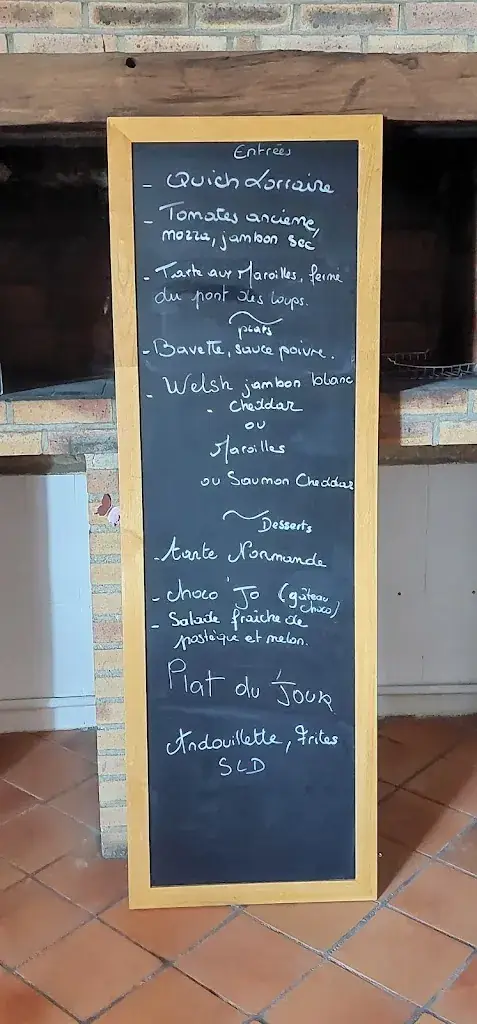 Entrées
- Quich Lorraine
- Tomates ancienne,
mozza, jambon sec
- Tarte aux Maroilles, ferme
du pont des loups.
plats
- Bavette, sauce poivre.
- Welsh jambon blanc
- Cheddar
ou
Maroilles
ou Saumon Cheddar
Desserts
- tarte Normande
- choco' Jo (gâteau
choco)
- Salade fraîche de
pastèque et melon.
Plat du Jour
Andouillette, Frites
SLD